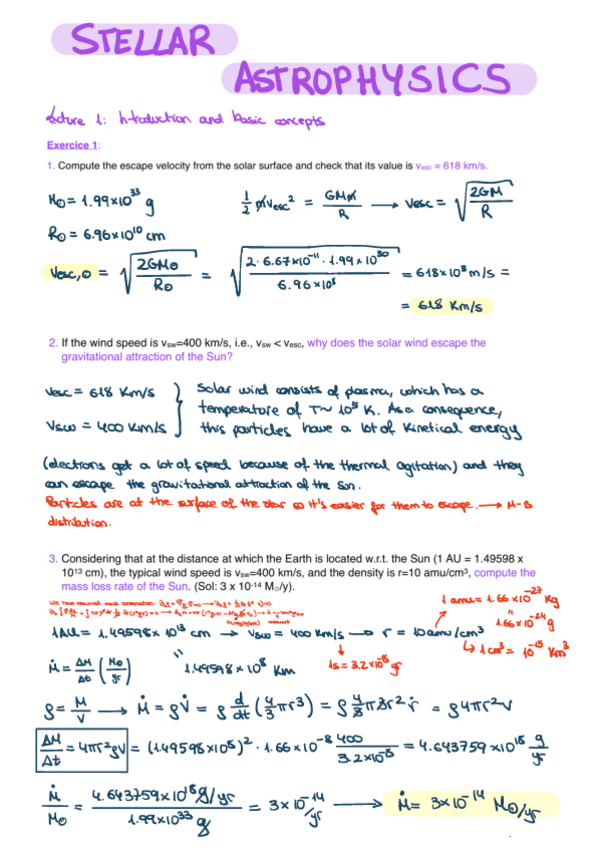 STELLAR
ASTROPHYSICS
Lecture 1: Introduction and basic concepts
Exercice 1:
1. Compute the escape velocity from the solar surface and check that its value is vesc = 618 km/s.
M⊙ = 1.99×10³³ g
½ m vesc² = GMm/R → vesc = √(2GM/R)
R⊙ = 6.96×10¹⁰ cm
vesc,⊙ = √(2GM⊙/R⊙) = √(2·6.67×10⁻¹¹·1.99×10³⁰ / 6.96×10⁸) = 618×10³ m/s =
= 618 Km/s
2. If the wind speed is vsw=400 km/s, i.e., vsw < vesc, why does the solar wind escape the
gravitational attraction of the Sun?
vesc = 618 Km/s
vsw = 400 Km/s
Solar wind consists of plasma, which has a
temperature of T~ 10⁵ K. As a consequence,
this particles have a lot of kinetical energy
(electrons get a lot of speed because of the thermal agitation) and they
can escape the gravitational attraction of the Sun.
Particles are at the surface of the star so it's easier for them to escape. → M-B
distribution.
3. Considering that at the distance at which the Earth is located w.r.t. the Sun (1 AU = 1.49598 x
10¹³ cm), the typical wind speed is vsw=400 km/s, and the density is r=10 amu/cm³, compute the
mass loss rate of the Sun. (Sol: 3 x 10⁻¹⁴ M⊙/y).
1 amu = 1.66×10⁻²⁷ kg
"
1.66×10⁻²⁴ g
1AU = 1.49598×10¹³ cm → vsw = 400 Km/s → r = 10 amu/cm³
↳ 1cm³ = 10⁻¹⁵ Km³
"
1.49598×10⁸ Km
1s = 3.2×10⁻⁸ yr
Ṁ = ΔM/Δt (M⊙/yr)
ρ = M/V → Ṁ = ρV̇ = ρ d/dt (4/3 πr³) = ρ 4/3 π3r²ṙ = ρ4πr²v
ΔM/Δt = 4πr²ρv = (1.49598×10⁸)² · 1.66×10⁻⁸ 400/3.2×10⁻⁸ = 4.643759×10¹⁸ g/yr
Ṁ/M⊙ = 4.643759×10¹⁸ g/yr / 1.99×10³³ g = 3×10⁻¹⁴ /yr → Ṁ = 3×10⁻¹⁴ M⊙/yr